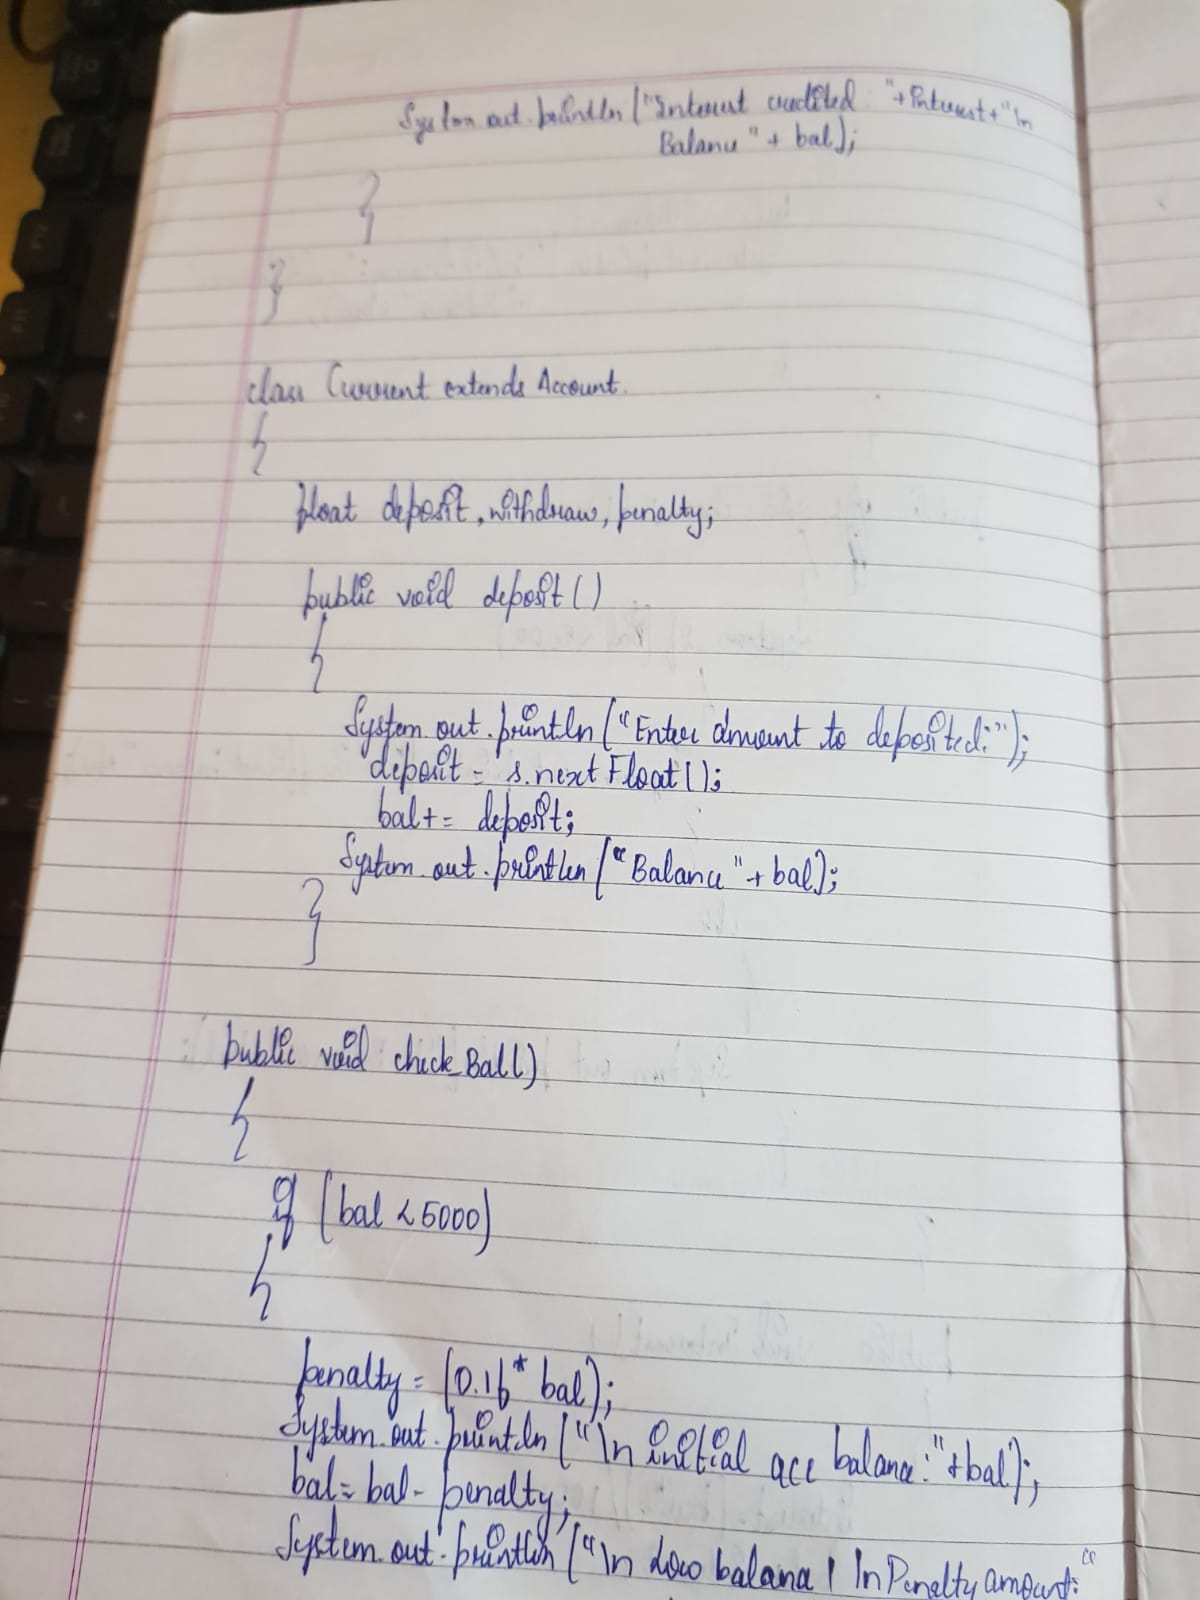 System.out.println("Interest credited: "+interest+"\n
Balance"+ bal);
}
}
class Current extends Account.
{
float deposit, withdraw, penalty;
public void deposit()
{
System.out.println("Enter amount to deposited:");
deposit = s.nextFloat();
bal+= deposit;
System.out.println("Balance"+ bal);
}
public void check_Bal()
{
if (bal < 5000)
{
penalty = (0.1f * bal);
System.out.println("\n initial acc balance:"+bal);
bal = bal - penalty;
System.out.println("\n Low balance! \n Penalty amount:"